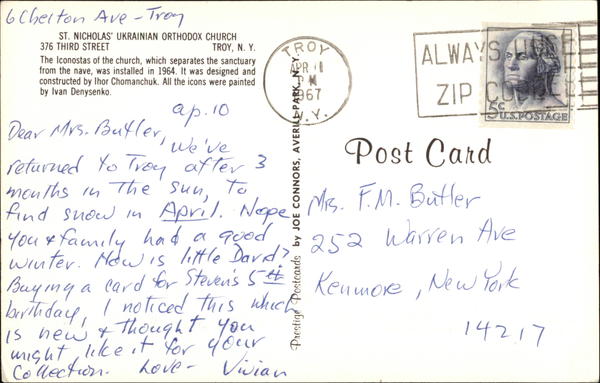 6 Chelton Ave - Troy
ST. NICHOLAS' UKRAINIAN ORTHODOX CHURCH
376 THIRD STREET TROY, N. Y.
The Iconostas of the church, which separates the sanctuary
from the nave, was installed in 1964. It was designed and
constructed by Ihor Chomanchuk. All the icons were painted
by Ivan Denysenko.
ap. 10
Dear Mrs. Butler, We've
returned to Troy after 3
months in the sun, to
find snow in April. Hope
you & family had a good
winter. How is little David?
Buying a card for Steven's 5th
birthday, I noticed this which
is new & thought you
might like it for your
Collection. Love - Vivian
Prestige Postcards by JOE CONNORS, AVERILL PARK, N. Y.
TROY
APR 11
PM
1967
N.Y.
ALWAYS USE
ZIP CODE
5c
U.S. POSTAGE
Post Card
Mrs. F.M. Butler
252 Warren Ave
Kenmore, New York
14217